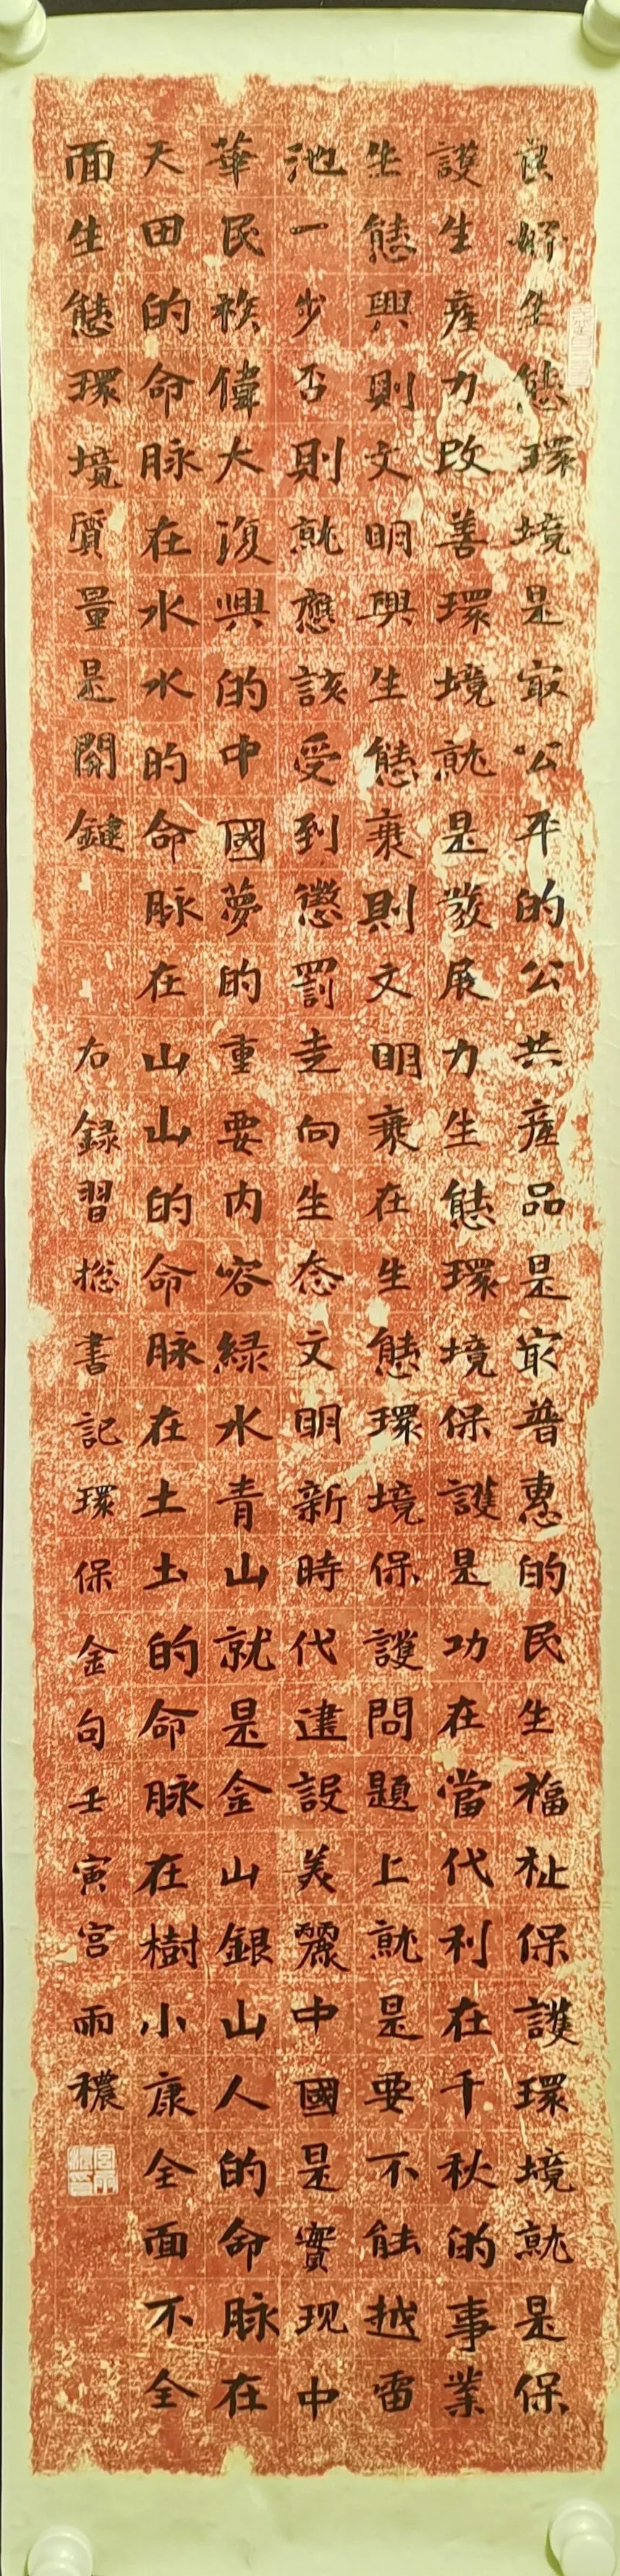 良好生態環境是最公平的公共産品是最普惠的民生福祉保護環境就是保
護生産力改善環境就是發展力生態環境保護是功在當代利在千秋的事業
生態興則文明興生態衰則文明衰在生態環境保護問題上就是要不能越雷
池一步否則就應該受到懲罰走向生态文明新時代建設美麗中國是實现中
華民族偉大復興的中國夢的重要内容緑水青山就是金山銀山人的命脉在
天田的命脉在水水的命脉在山山的命脉在土土的命脉在樹小康全面不全
面生態環境質量是關鍵
右録習総書記環保金句壬寅宫雨穠